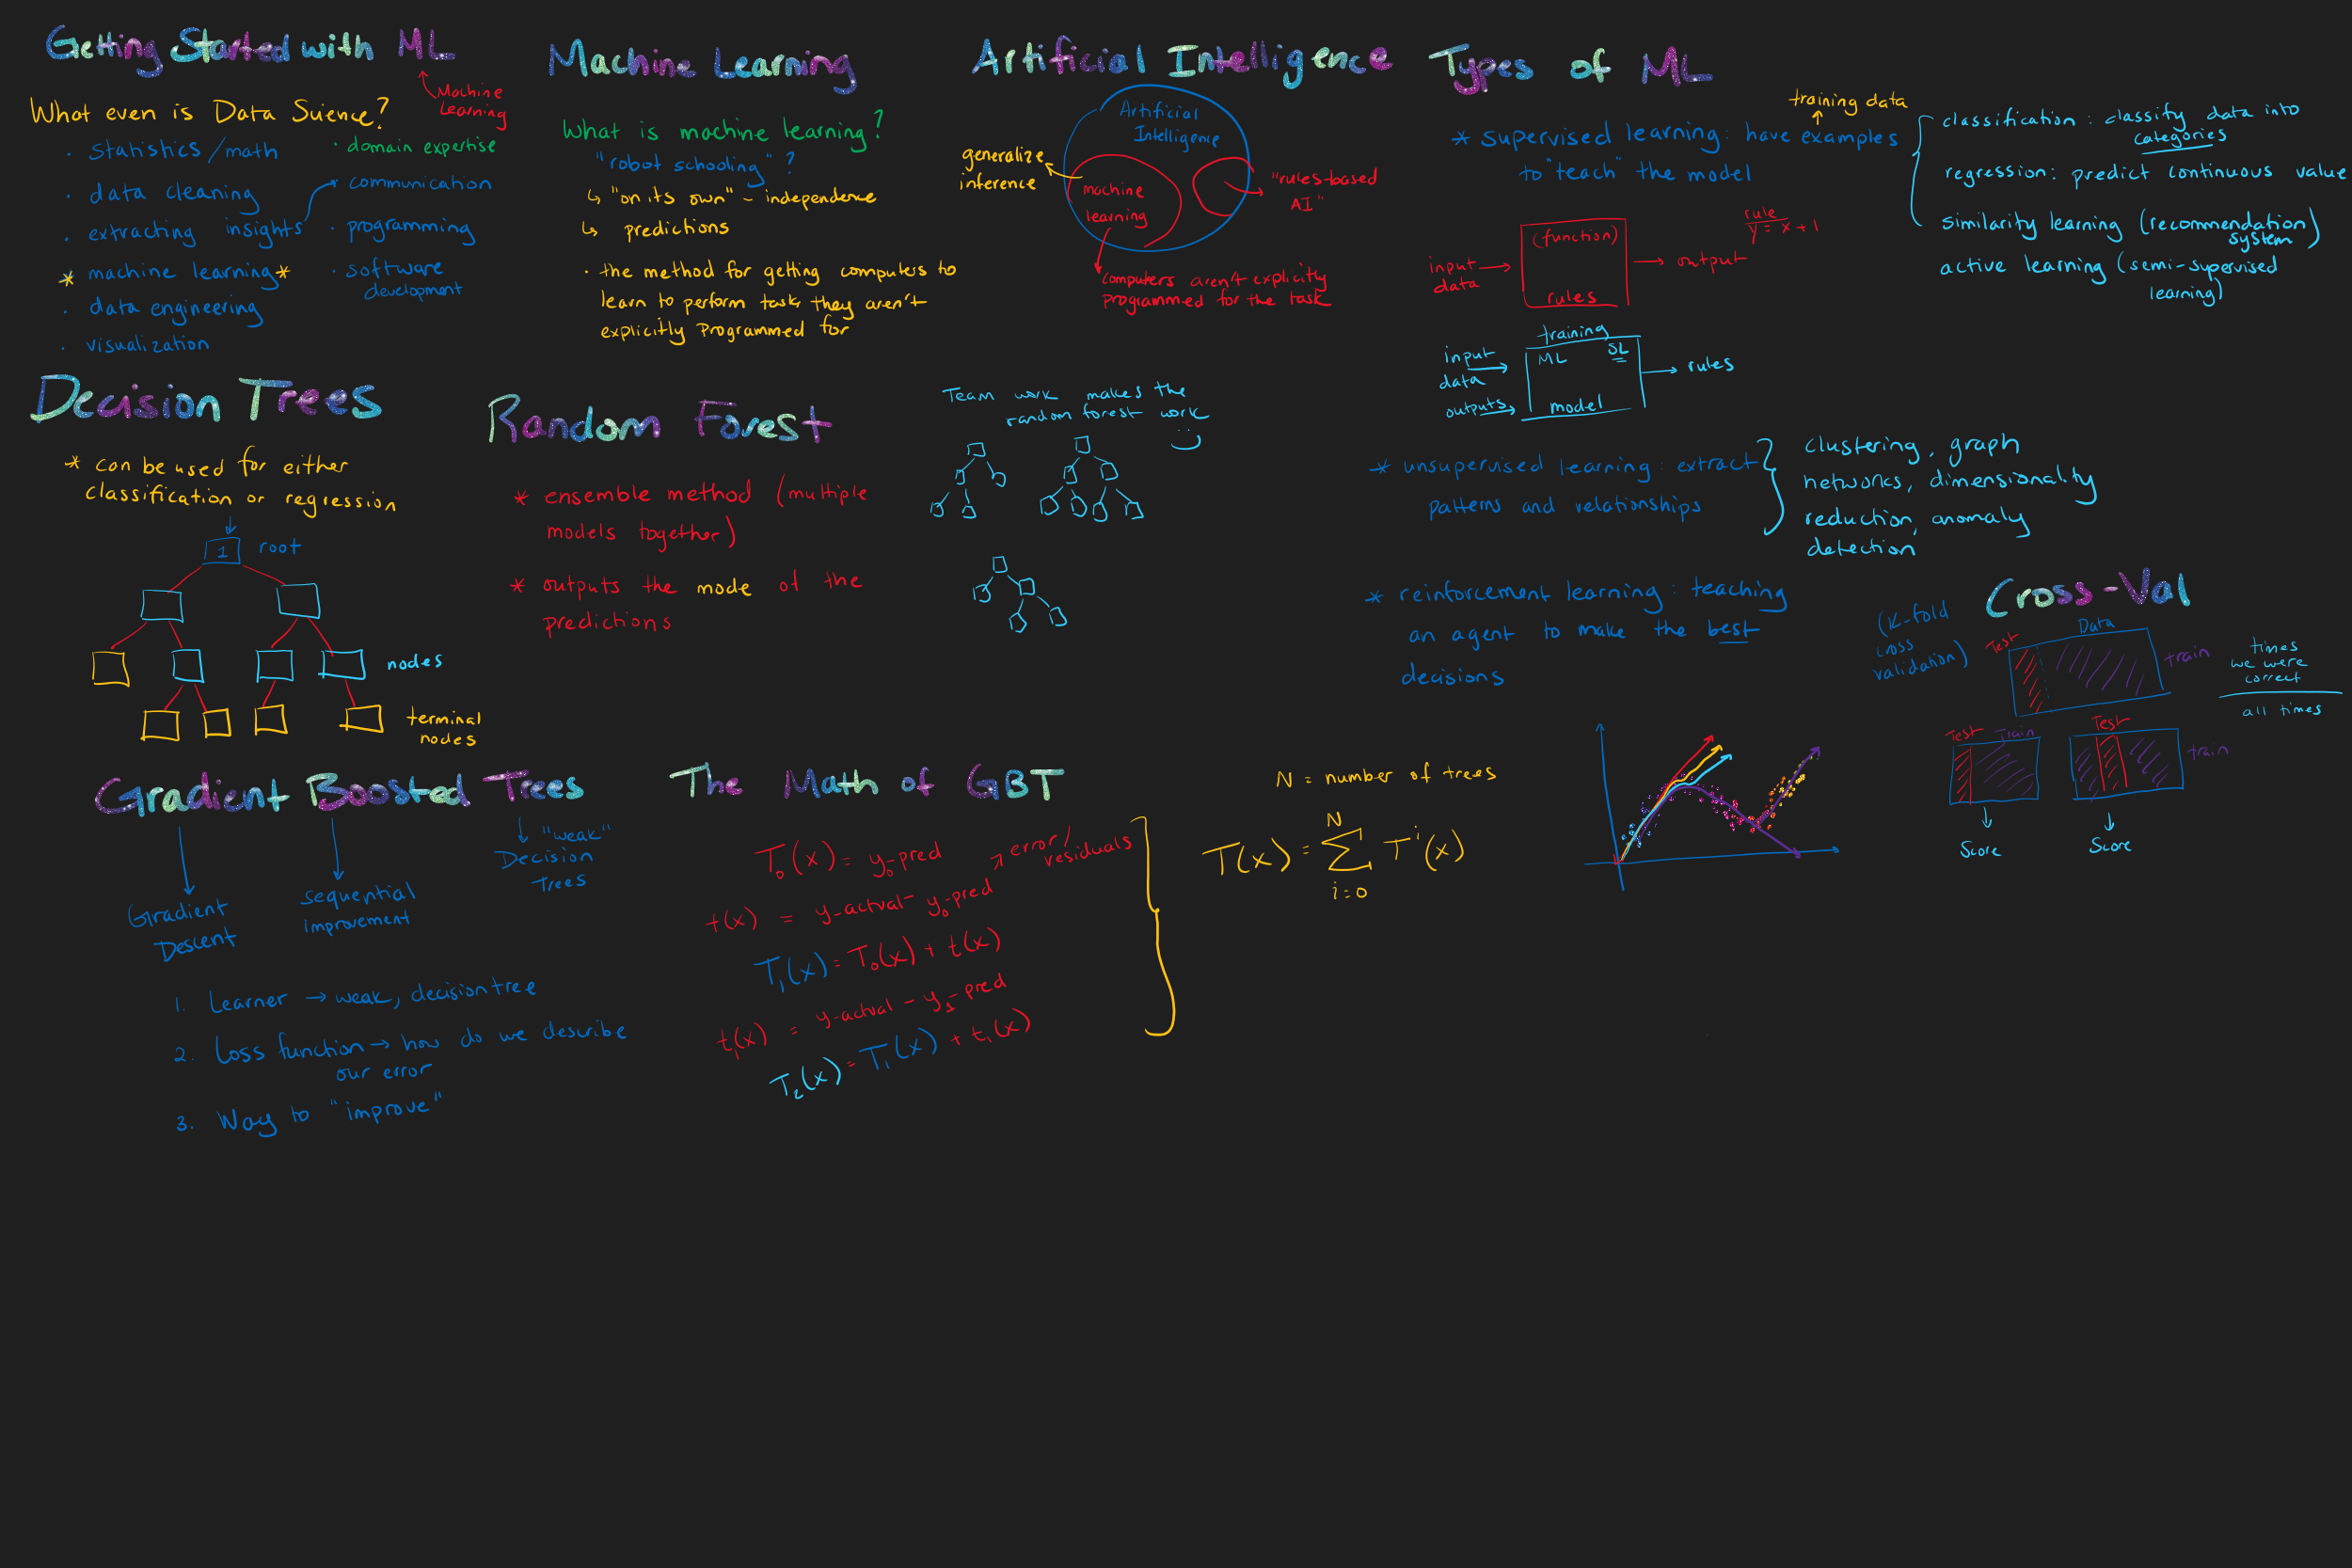 Getting Started with ML
Machine
Learning
What even is Data Suience?
· Statistics/math
· data cleaning
· extracting insights
* machine learning *
· data engineering
· visualization
· domain expertise
communication
· programming
· software
development
Machine Learning
What is machine learning?
"robot schooling"?
↳ "on its own" - independence
↳ predictions
· the method for getting computers to
learn to perform tasks they aren't
explicitly Programmed for
Artificial Intelligence
Artificial
Intelligence
generalize
inference
machine
learning
"rules-based
AI"
computers aren't explicitly
programmed for the task
Types of ML
training data
* supervised learning: have examples
to "teach" the model
classification: classify data into
categories
regression: predict continuous value
similarity learning (recommendation
system)
active learning (semi-supervised
learning)
(function)
input
data
rules
→ output
rule
y = x + 1
training
input
data
outputs
ML SL
model
→ rules
* unsupervised learning: extract
patterns and relationships
clustering, graph
networks, dimensionality
reduction, anomaly
detection
* reinforcement learning: teaching
an agent to make the best
decisions
Decision Trees
* can be used for either
classification or regression
1
root
nodes
terminal
nodes
Random Forest
* ensemble method (multiple
models together)
* outputs the mode of the
predictions
Team work makes the
random forest work
Cross-Val
(K-fold
cross
validation)
Data
Test
train
times
we were
correct
all times
Test Train
Test
train
Score
Score
Gradient Boosted Trees
Gradient
Descent
sequential
improvement
"weak"
Decision
Trees
1. Learner → weak, decision tree
2. Loss function → how do we describe
our error
3. Way to "improve"
The Math of GBT
T₀(x) = y₀-pred
error/
residuals
t(x) = y-actual - y₀-pred
T₁(x) = T₀(x) + t(x)
t₁(x) = y-actual - y₁-pred
T₂(x) = T₁(x) + t₁(x)
N = number of trees
N
T(x) = Σ Tⁱ(x)
i=0